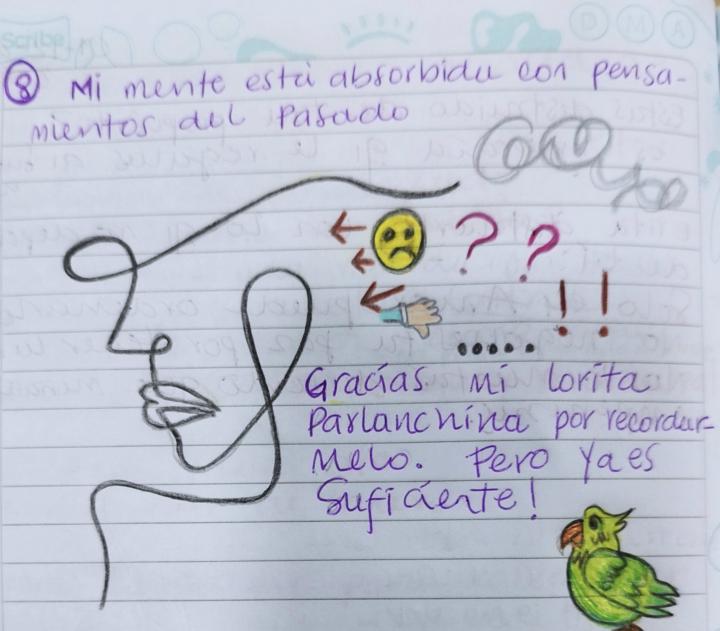 Scribe
D M A
⑧ Mi mente está absorbida con pensa-
mientos del pasado
? ?
! !
......
Gracias mi lorita
Parlanchina por recordar-
Melo. Pero ya es
Suficiente!